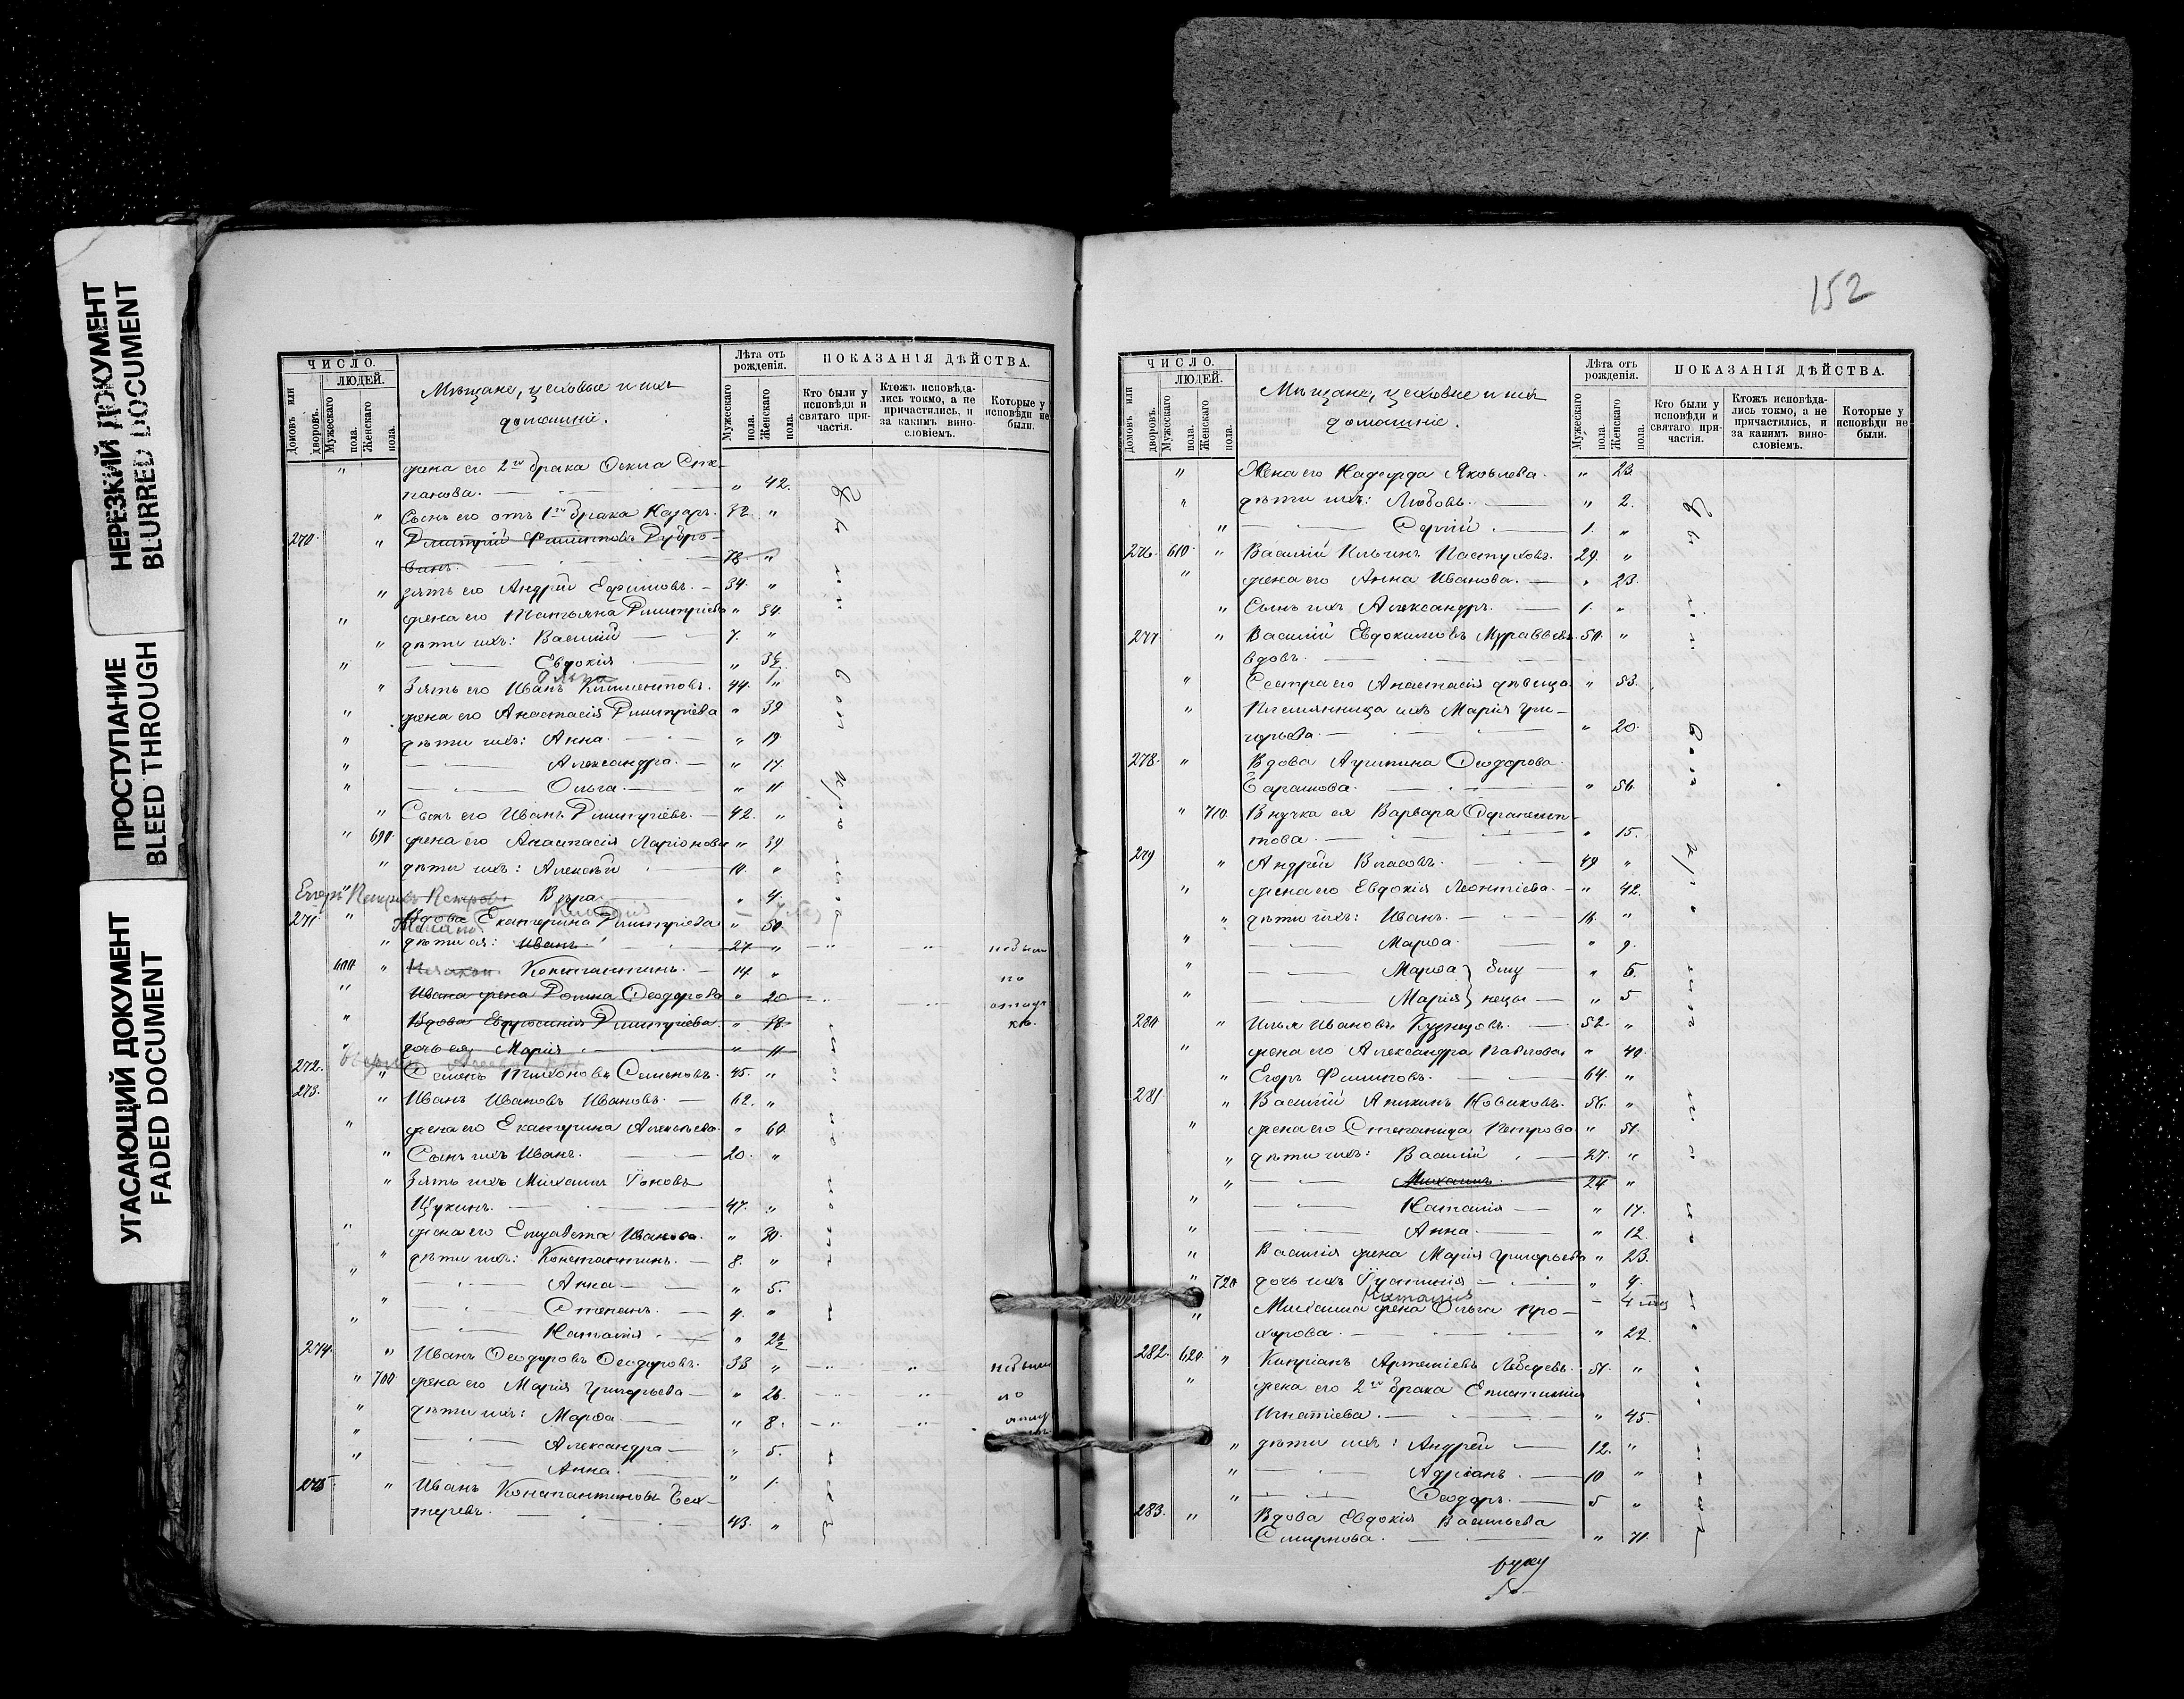 НЕРЕЗКИЙ ДОКУМЕНТ
BLURRED DOCUMENT
ПРОСТУПАНИЕ
BLEED THROUGH
УГАСАЮЩИЙ ДОКУМЕНТ
FADED DOCUMENT
ЧИСЛО.
Домовъ или дворовъ.
ЛЮДЕЙ.
Мужескаго пола.
Женскаго пола.
Мѣщане, цеховые и ихъ
домашніе.
Лѣта отъ рожденія.
Мужескаго пола.
Женскаго пола.
ПОКАЗАНІЯ ДѢЙСТВА.
Кто были у исповѣди и святаго причастія.
Ктожъ исповѣдались токмо, а не причастились, и за какимъ винословіемъ.
Которые у исповѣди не были.
" жена его 2го брака Ѳекла Сте-
панова. " 42.
" Сынъ его отъ 1го брака Назаръ. 32. "
270. " Димитрій Филиповъ Дубро-
винъ. 73 "
" зять его Андрей Ефимовъ. 34. "
" жена его Татьяна Димитріева " 34.
" дѣти ихъ: Василій 7. "
" Евдокія " 3½
" Зять его Иванъ Климентовъ. 44. "
" жена его Анастасія Димитріева " 39
" дѣти ихъ: Анна. " 19.
" Александра. " 17.
" Ольга. " 11
" Сынъ его Иванъ Димитріевъ. 42. "
" 690. жена его Анастасія Ларіонова " 39
" дѣти ихъ: Алексѣй 10. "
Вѣра " 4.
271. " Вдова Екатерина Димитріева " 50.
" дѣти ея: Иванъ. 27 " небыли
600 " Константинъ. 14. " по
" Ивана жена Домна Ѳеодорова " 20 отлуч
" Вдова Евфросинія Димитріева. " 38. кѣ.
" дочь ея Марія " 11
272. " Семенъ Семеновъ. 45. "
273. " Иванъ Ивановъ Ивановъ. 62. "
" жена его Екатерина Алексѣева. " 60.
" Сынъ ихъ Иванъ. 20. "
" Зять ихъ Михаилъ Іоновъ
Щукинъ. 47. "
" жена его Елизавета Иванова. " 30.
" дѣти ихъ: Константинъ. 8. "
" Анна " 5.
" Степанъ. 4. "
" Наталія " 2½
274. " Иванъ Ѳеодоровъ Ѳеодоровъ. 33 " небыли
" 700 жена его Марія Григорьева " 26. по
" дѣти ихъ: Марѳа " 8.
" Александра " 5.
" Анна. " 1.
275 " Иванъ Константиновъ Бех-
теревъ. 43. "
152
ЧИСЛО.
Домовъ или дворовъ.
ЛЮДЕЙ.
Мужескаго пола.
Женскаго пола.
Мѣщане, цеховые и ихъ
домашніе.
Лѣта отъ рожденія.
Мужескаго пола.
Женскаго пола.
ПОКАЗАНІЯ ДѢЙСТВА.
Кто были у исповѣди и святаго причастія.
Ктожъ исповѣдались токмо, а не причастились, и за какимъ винословіемъ.
Которые у исповѣди не были.
" Жена его Надежда Яковлева. " 23.
" дѣти ихъ: Любовь. " 2.
" Сергій 1. "
276. 610. " Василій Ильинъ Пастуховъ. 29. "
" жена его Анна Иванова. " 23.
" Сынъ ихъ Александръ. 1. "
277 " Василій Евдокимовъ Муравьевъ. 50. "
вдовъ.
" Сестра его Анастасія дѣвица. " 53.
" Племянница ихъ Марія Гри-
горьева. " 20.
278. " Вдова Акулина Ѳеодорова
Барашова. " 56.
" 710. Внучка ея Варвара
" 15.
279 " Андрей Власовъ. 49 "
" жена его Евдокія Леонтіева. " 42.
" дѣти ихъ: Иванъ. 16. "
" Марѳа. " 9.
" Марѳа } близ " 5.
" Марія } нецы " 5
280 " Илья Ивановъ Кузнецовъ. 52. "
" жена его Александра Павлова " 40.
" Егоръ Филиповъ. 64. "
281. " Василій Аникинъ Новиковъ. 56. "
" жена его Степанида Петрова " 51.
" дѣти ихъ: Василій 27. "
" Михаилъ. 24 "
" Наталія " 17.
" Анна. " 12.
" Василія жена Марія Григорьева " 23.
" 720. дочь ихъ Іустинія " 4.
Наталія 4 мѣс
" Михаила жена Ольга Про-
хорова. " 22.
282. 620. " Кипріанъ Артеміевъ Лебедевъ. 51. "
" жена его 2го брака Епистимія
Игнатіева. " 45.
" дѣти ихъ: Андрей 12. "
" Адріанъ. 10 "
" Ѳеодоръ. 5 "
283. " Вдова Евдокія Васильева
Смирнова. " 71.